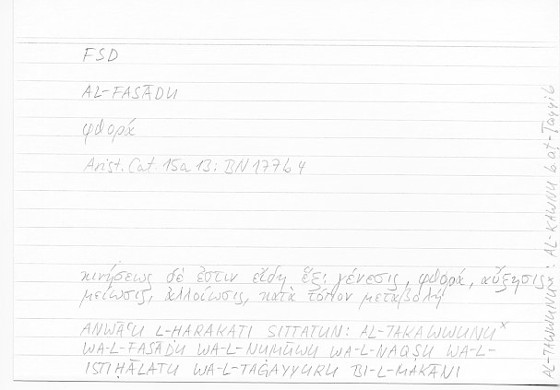 FSD
AL-FASĀDU
φθορά
Arist. Cat. 15a 13; BN 177b 4
κινήσεως δέ ἐστιν εἴδη ἕξ· γένεσις, φθορά, αὔξησις
μείωσις, ἀλλοίωσις, κατὰ τόπον μεταβολή
ANWĀʿU L-ḤARAKATI SITTATUN: AL-TAKAWWUNU×
WA-L-FASĀDU WA-L-NUMŪWU WA-L-NAQṢU WA-L-
ISTIḤĀLATU WA-L-TAĠAYYURU BI-L-MAKĀNI
AL-KAWNU b. aṭ-Ṭayyib